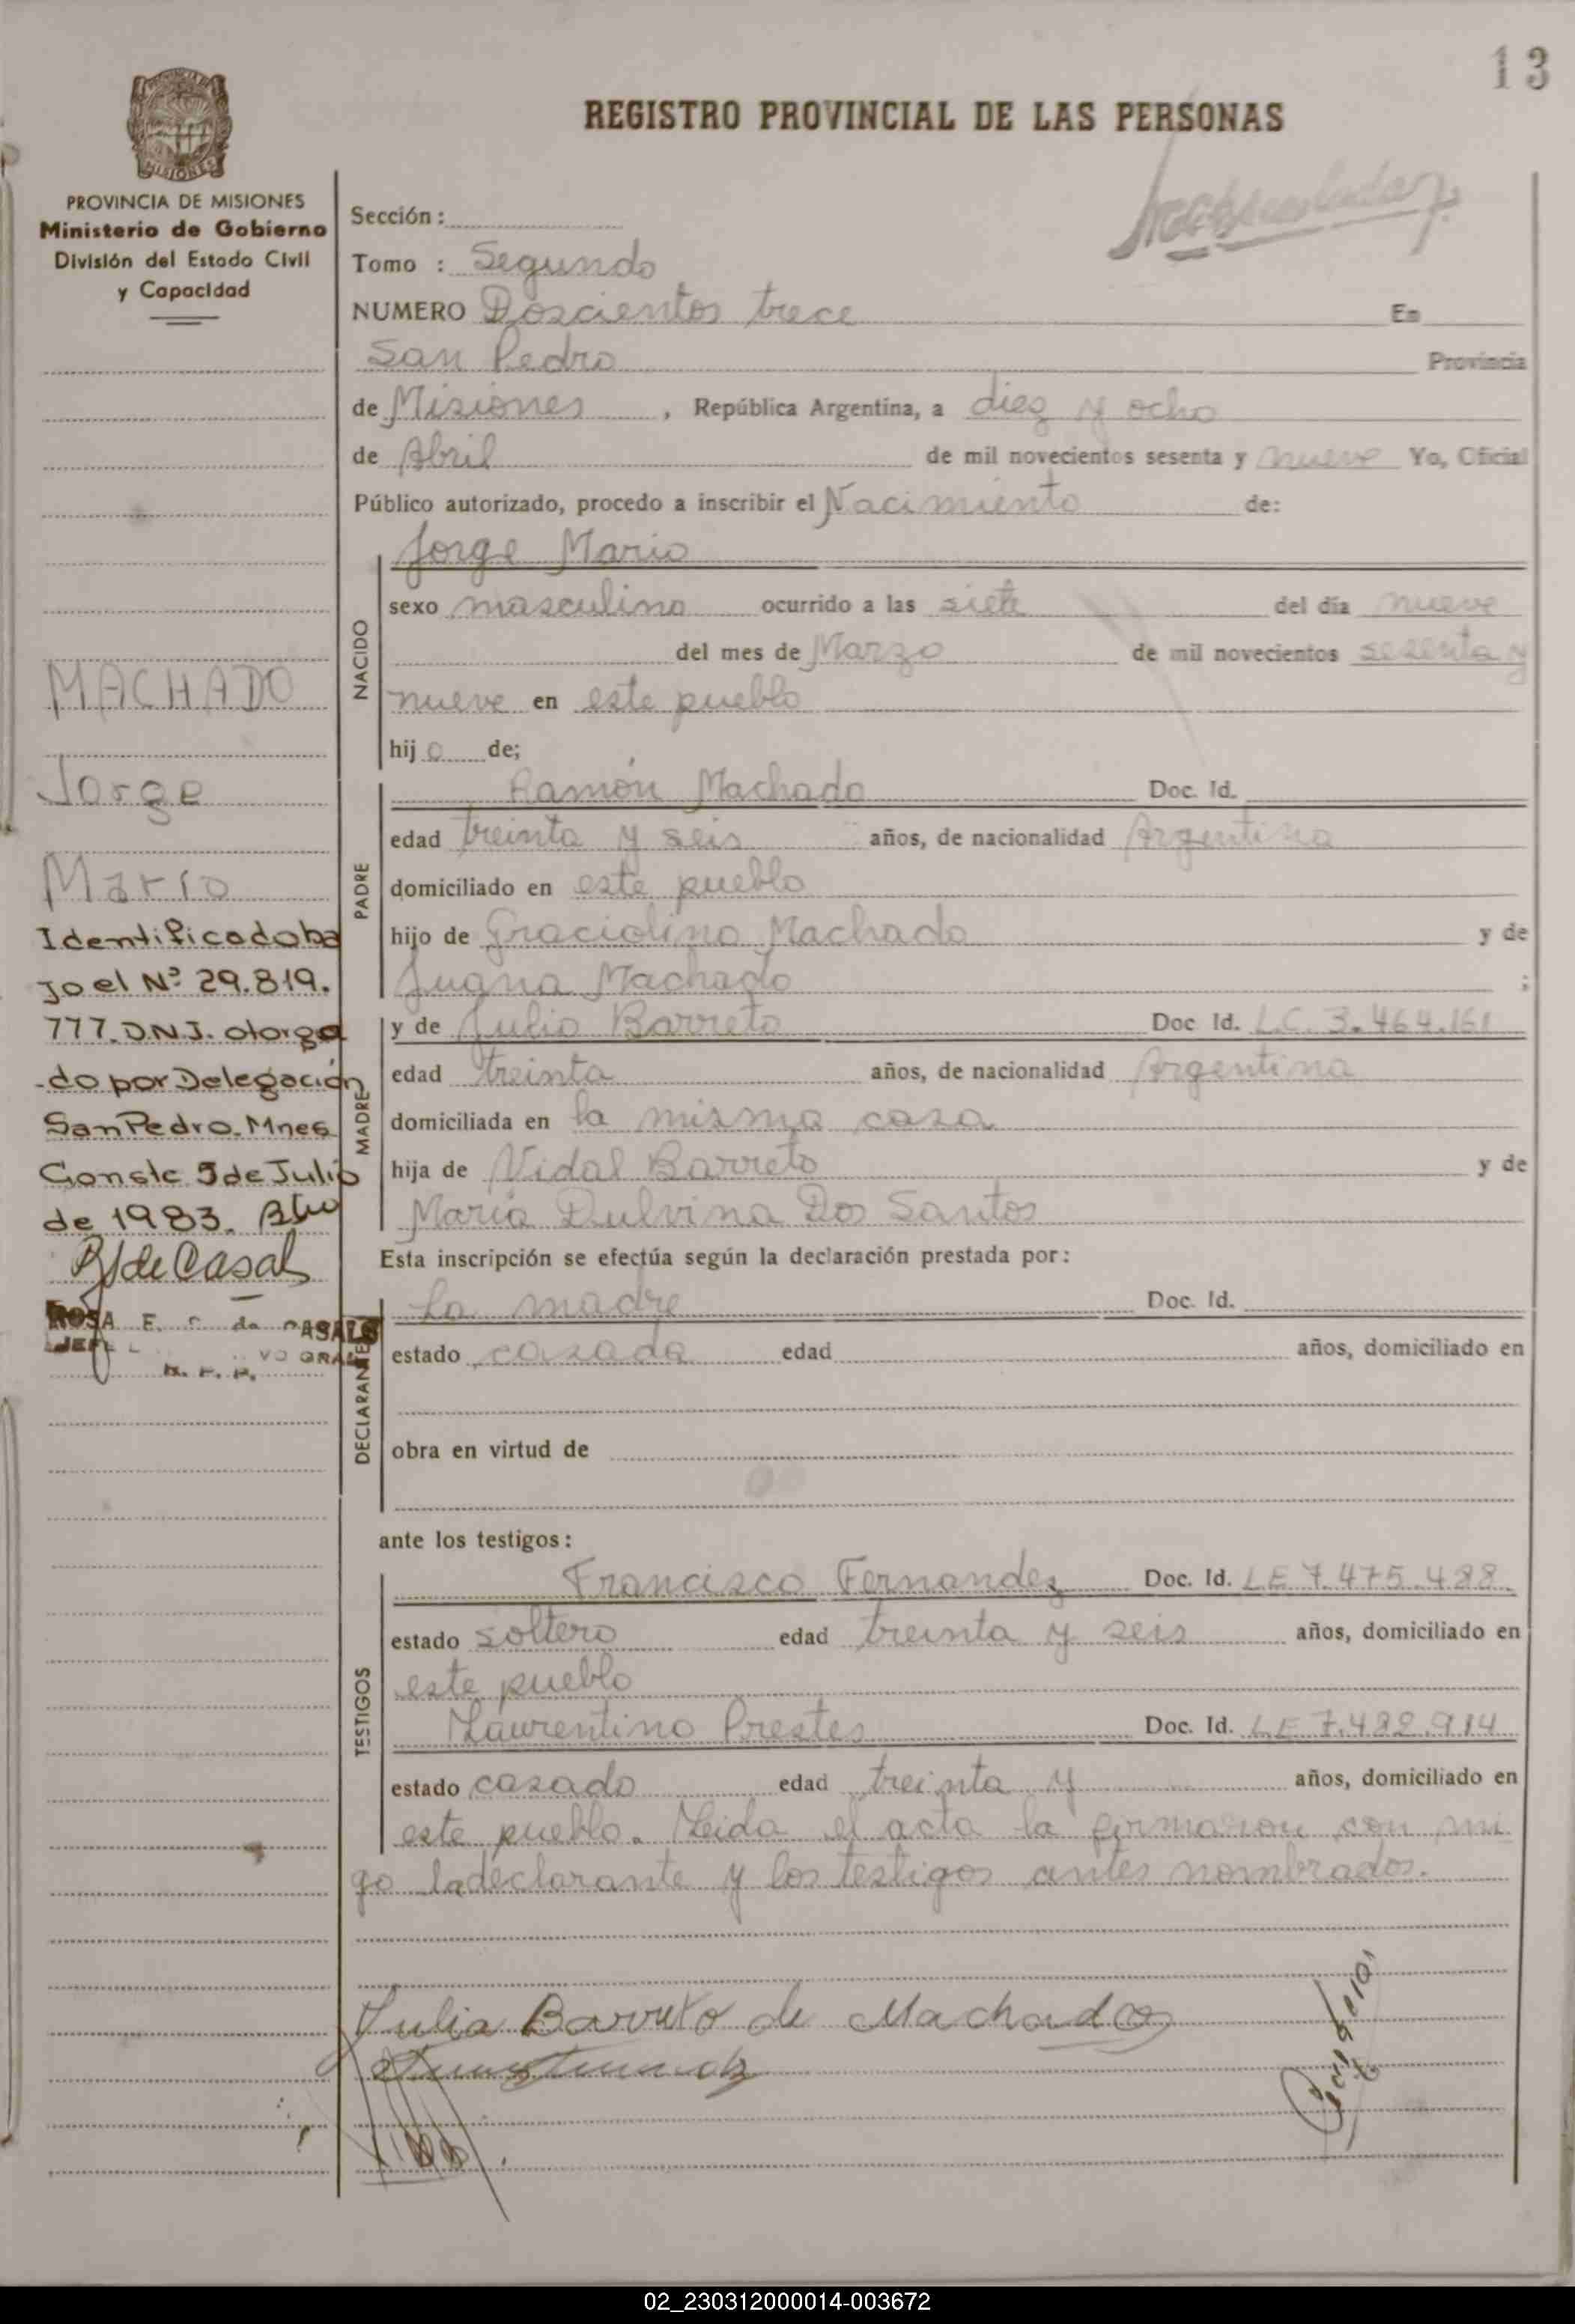 13
REGISTRO PROVINCIAL DE LAS PERSONAS
MISIONES
PROVINCIA DE MISIONES
Ministerio de Gobierno
División del Estado Civil
y Capacidad
MACHADO
Jorge
Mario
Identificado ba
jo el Nº 29.819.
777. D.N.I. otorga
-do por Delegación
San Pedro. Mnes
Conste 5 de Julio
de 1983.
R de Casal
ROSA E. C. de CASALS
Sección:
Tomo : Segundo
NUMERO Doscientos trece En
San Pedro Provincia
de Misiones , República Argentina, a diez y ocho
de Abril de mil novecientos sesenta y nueve Yo, Oficial
Público autorizado, procedo a inscribir el Nacimiento de:
NACIDO
Jorge Mario
sexo masculino ocurrido a las siete del día nueve
del mes de Marzo de mil novecientos sesenta y
nueve en este pueblo
hijo de;
PADRE
Ramón Machado Doc. Id.
edad treinta y seis años, de nacionalidad Argentina
domiciliado en este pueblo
hijo de Graciolino Machado y de
Juana Machado ;
MADRE
y de Julia Barreto Doc Id. L.C. 3.464.161
edad treinta años, de nacionalidad Argentina
domiciliada en la misma casa
hija de Vidal Barreto y de
María Dulvina Dos Santos
Esta inscripción se efectúa según la declaración prestada por:
DECLARANTE
La madre Doc. Id.
estado casada edad años, domiciliado en
obra en virtud de
ante los testigos:
TESTIGOS
Francisco Fernandez Doc. Id. LE 7.475.488.
estado soltero edad treinta y seis años, domiciliado en
este pueblo
Laurentino Prestes Doc. Id. LE 7.482.914
estado casado edad treinta y años, domiciliado en
este pueblo. Leida el acta la firmaron con mi
go ladeclarante y los testigos antes nombrados.
Julia Barreto de Machado
02_230312000014-003672